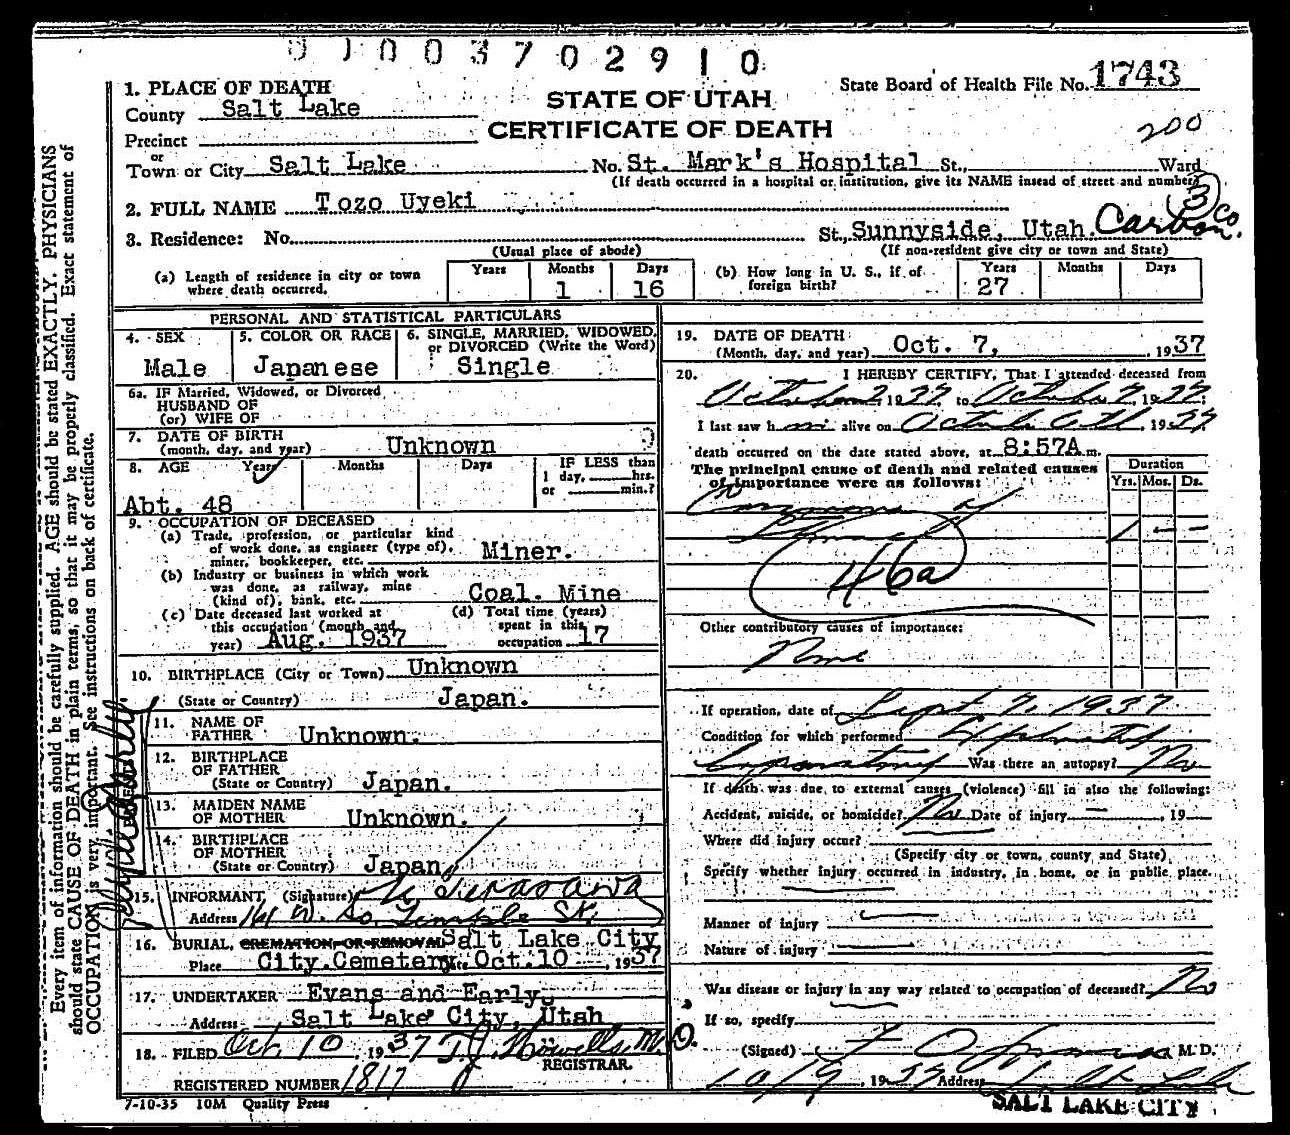 0 1 0 0 3 7 0 2 9 1 0
State Board of Health File No. 1743
STATE OF UTAH
CERTIFICATE OF DEATH
200
1. PLACE OF DEATH
County Salt Lake
Precinct
or
Town or City Salt Lake No. St. Mark's Hospital St., Ward
(If death occurred in a hospital or institution, give its NAME insead of street and number)
2. FULL NAME Tozo Uyeki
3
3. Residence: No. St., Sunnyside, Utah. Carbon Co.
(Usual place of abode) (If non-resident give city or town and State)
(a) Length of residence in city or town where death occurred. Years Months 1 Days 16
(b) How long in U. S., if of foreign birth? Years 27 Months Days
PERSONAL AND STATISTICAL PARTICULARS
4. SEX Male
5. COLOR OR RACE Japanese
6. SINGLE, MARRIED, WIDOWED, or DIVORCED (Write the Word) Single
6a. IF Married, Widowed, or Divorced
HUSBAND OF
(or) WIFE OF
7. DATE OF BIRTH
(month, day, and year) Unknown
8. AGE Years Months Days IF LESS than
1 day, hrs.
or min.?
Abt. 48
9. OCCUPATION OF DECEASED
(a) Trade, profession, or particular kind
of work done, as engineer (type of),
miner, bookkeeper, etc. Miner.
(b) Industry or business in which work
was done, as railway, mine
(kind of), bank, etc. Coal. Mine
(c) Date deceased last worked at
this occupation (month and
year) Aug. 1937
(d) Total time (years)
spent in this
occupation 17
10. BIRTHPLACE (City or Town) Unknown
(State or Country) Japan.
11. NAME OF
FATHER Unknown.
12. BIRTHPLACE
OF FATHER
(State or Country) Japan.
13. MAIDEN NAME
OF MOTHER Unknown.
14. BIRTHPLACE
OF MOTHER
(State or Country) Japan
15. INFORMANT (Signature) Terasawa
Address W. So. Temple St.
16. BURIAL, CREMATION, OR REMOVAL Salt Lake City
Place City Cemetery Date Oct. 10, 1937
17. UNDERTAKER Evans and Early.
Address Salt Lake City, Utah
18. FILED Oct 10, 1937 T.J. Howells M.D.
REGISTRAR.
REGISTERED NUMBER 1817
7-10-35 10M Quality Press
19. DATE OF DEATH
(Month, day, and year) Oct. 7, 1937
20. I HEREBY CERTIFY, That I attended deceased from
October 2 1937 to October 7, 1937.
I last saw him alive on October 6th, 1937
death occurred on the date stated above, at 8:57A m.
The principal cause of death and related causes
of importance were as follows:
Duration
Yrs. Mos. Ds.
Carcinoma of
Stomach
1 — —
46a
Other contributory causes of importance:
None
If operation, date of Sept 7, 1937
Condition for which performed
Exploratory Was there an autopsy? No
If death was due to external causes (violence) fill in also the following:
Accident, suicide, or homicide? No Date of injury — , 19
Where did injury occur?
(Specify city or town, county and State)
Specify whether injury occurred in industry, in home, or in public place.
Manner of injury
Nature of injury
Was disease or injury in any way related to occupation of deceased? No
If so, specify
(Signed) M. D.
10/9, 1937 Address Salt Lake
SALT LAKE CITY
Every item of information should be carefully supplied. AGE should be stated EXACTLY. PHYSICIANS
should state CAUSE OF DEATH in plain terms, so that it may be properly classified. Exact statement of
OCCUPATION is very important. See instructions on back of certificate.